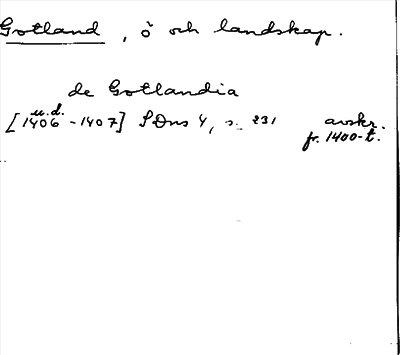 Gotland, ö och landskap.
de Gotlandia
u.d.
[1406-1407] SDns 4, s. 231 avskr.
fr. 1400-t.